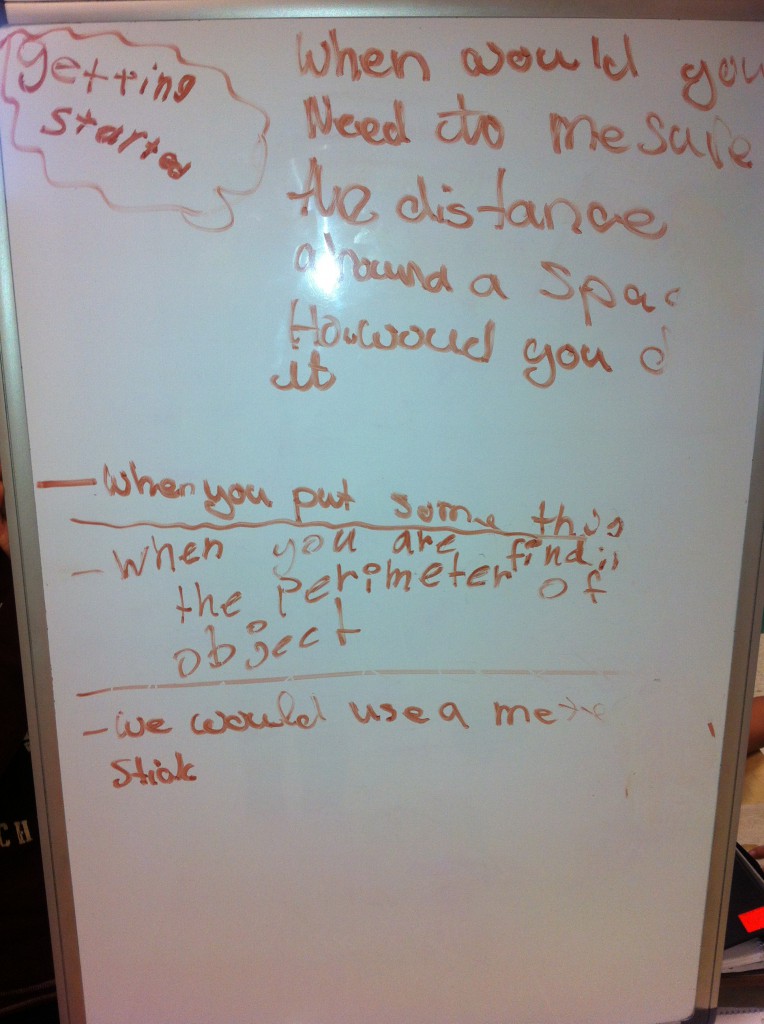 getting
started
When would you
Need to mesure
the distance
around a spac
How woud you d
it
- When you put some this
- When you are findi
the perimeter of
object
- we would use a metre
stick
CH